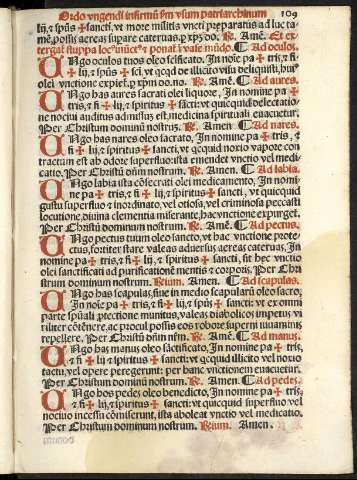 Ordo vngendi infirmũ scm̃ vsum patriarchinum 109
lij, & spũs ✠ sancti, vt more militis vncti preparatis ad lucta
mẽ possis aereas superare cateruas. p xp̃z do. ℟. Amẽ. Et ex
tergat stuppa loca vncta & ponat ĩ vase mũdo. ¶ Ad oculos.
UNgo oculos tuos oleo sctificato. In noĩe pa ✠ tris, & fi ✠
lij, & spũs ✠ sci, vt qcqd illicito visu deliquisti, hui9
olei vnctione expiet. p xp̃m do. no. ℟. Amẽ. ¶ Ad aures.
UNgo has aures sacrati olei liquore, In nomine pa ✠
tris, & fi ✠ lij, & spiritus ✠ sancti: vt quicquid delectatio
ne nociui auditus admissus est, medicina spirituali euacuetur.
Per Christum dominum nostrum. ℟. Amen. ¶ Ad nares.
UNgo has nares oleo sacrato, In nomine pa ✠ tris, &
fi ✠ lij, & spiritus ✠ sancti, vt qcquid noxio vapore con
tractum est ab odore superfluo: ista emendet vnctio vel medi
catio. Per Christũ dñm nostrum. ℟. Amẽ. ¶ Ad labia.
UNgo labia ista cõsecrati olei medicamento, In nomi
ne pa ✠ tris, & fi ✠ lij, & spiritus ✠ sancti, vt quicquid
gustu superfluo & inordinato, vel otiosa, vel criminosa peccasti
locutione, diuina clementia miserante, hac vnctione expurget.
Per Christũ dominum nostrum. ℟. Amẽ. ¶ Ad pectus.
UNgo pectus tuum oleo sancto, vt hac vnctione prote-
ctus, fortiter stare valeas aduersus aereas cateruas, In
nomine pa ✠ tris, & fi ✠ lij, & spiritus ✠ sancti, fit hec vnctio
olei sanctificati ad purificationẽ mentis & corporis. Per Chri
strum dominum nostrum. Rium. Amen. ¶ Ad scapulas.
UNgo has scapulas, siue in medio scapularũ oleo sacro,
In noĩe pa ✠ tris, & fi ✠ lij & spũs ✠ sancti: vt ex omni
parte spũali ptectione munitus, valeas diabolicos impetus vi
riliter cõtẽnere, ac procul possis eos robore superni iuuaminis
repellere. Per Christũ dñm nrm. ℟. Amẽ. ¶ Ad manus.
UNgo has manus oleo sãctificato, In nomine pa ✠ tris,
& fi ✠ lij & spiritus ✠ sancti: vt qcquid illicito vel noxio
tactu, vel opere peregerunt: per hanc vnctionem euacuetur.
Per Christum dominũ nostrum. ℟. Amen. ¶ Ad pedes.
UNgo hos pedes oleo benedicto, In nomine pa ✠ tris,
& fi ✠ lij, & spiritus ✠ sancti: vt quicquid superfluo vel
nociuo incessu cõmiserunt, ista aboleat vnctio vel medicatio.
Per Christum dominum nostrum. Rium. Amen.